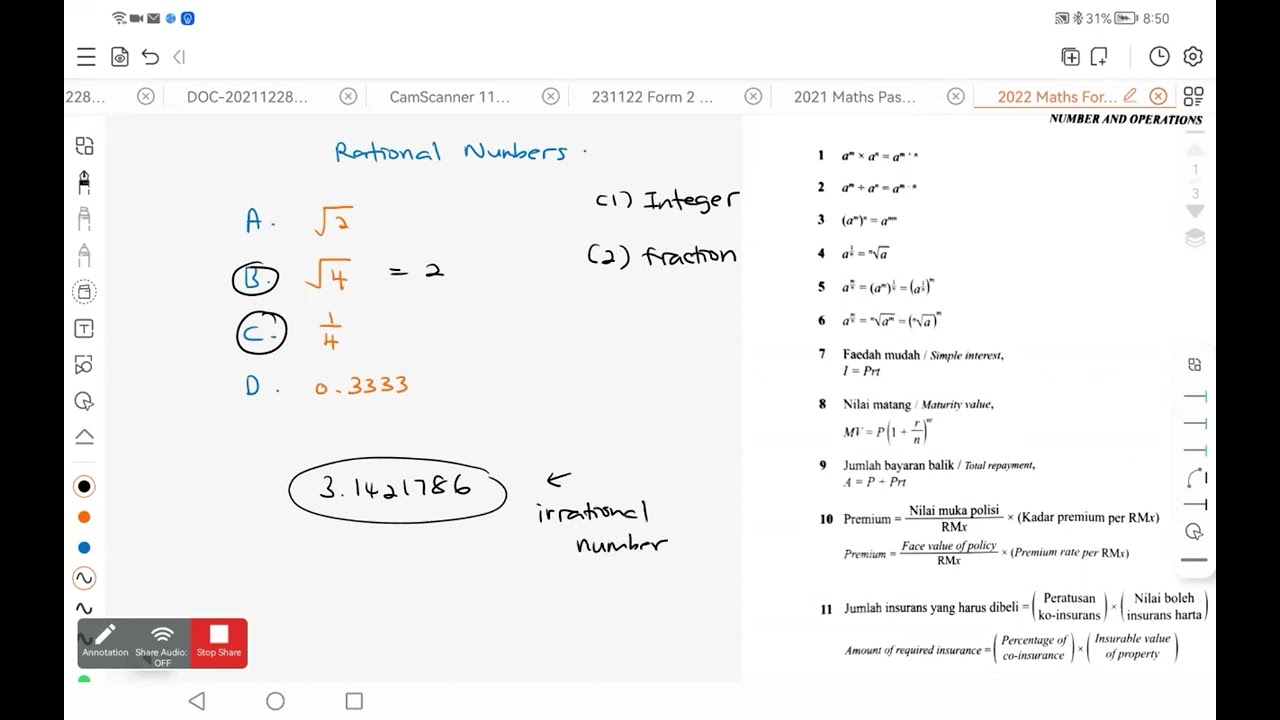 31% 8:50
228... DOC-20211228... CamScanner 11... 231122 Form 2 ... 2021 Maths Pas... 2022 Maths For...
NUMBER AND OPERATIONS
Rational Numbers.
(1) Integer
(2) fraction
A. √2
B. √4 = 2
C. 1/4
D. 0.3333
3.1421786 ←
irrational
number
1 aᵐ × aⁿ = aᵐ⁺ⁿ
2 aᵐ ÷ aⁿ = aᵐ⁻ⁿ
3 (aᵐ)ⁿ = aᵐⁿ
4 a^(1/n) = ⁿ√a
5 a^(m/n) = (aᵐ)^(1/n) = (a^(1/n))ᵐ
6 a^(m/n) = ⁿ√aᵐ = (ⁿ√a)ᵐ
7 Faedah mudah / Simple interest,
I = Prt
8 Nilai matang / Maturity value,
MV = P(1 + r/n)ⁿᵗ
9 Jumlah bayaran balik / Total repayment,
A = P + Prt
10 Premium = Nilai muka polisi / RMx × (Kadar premium per RMx)
Premium = Face value of policy / RMx × (Premium rate per RMx)
11 Jumlah insurans yang harus dibeli = (Peratusan ko-insurans) × (Nilai boleh insurans harta)
Amount of required insurance = (Percentage of co-insurance) × (Insurable value of property)
1
3
Annotation Share Audio: OFF Stop Share